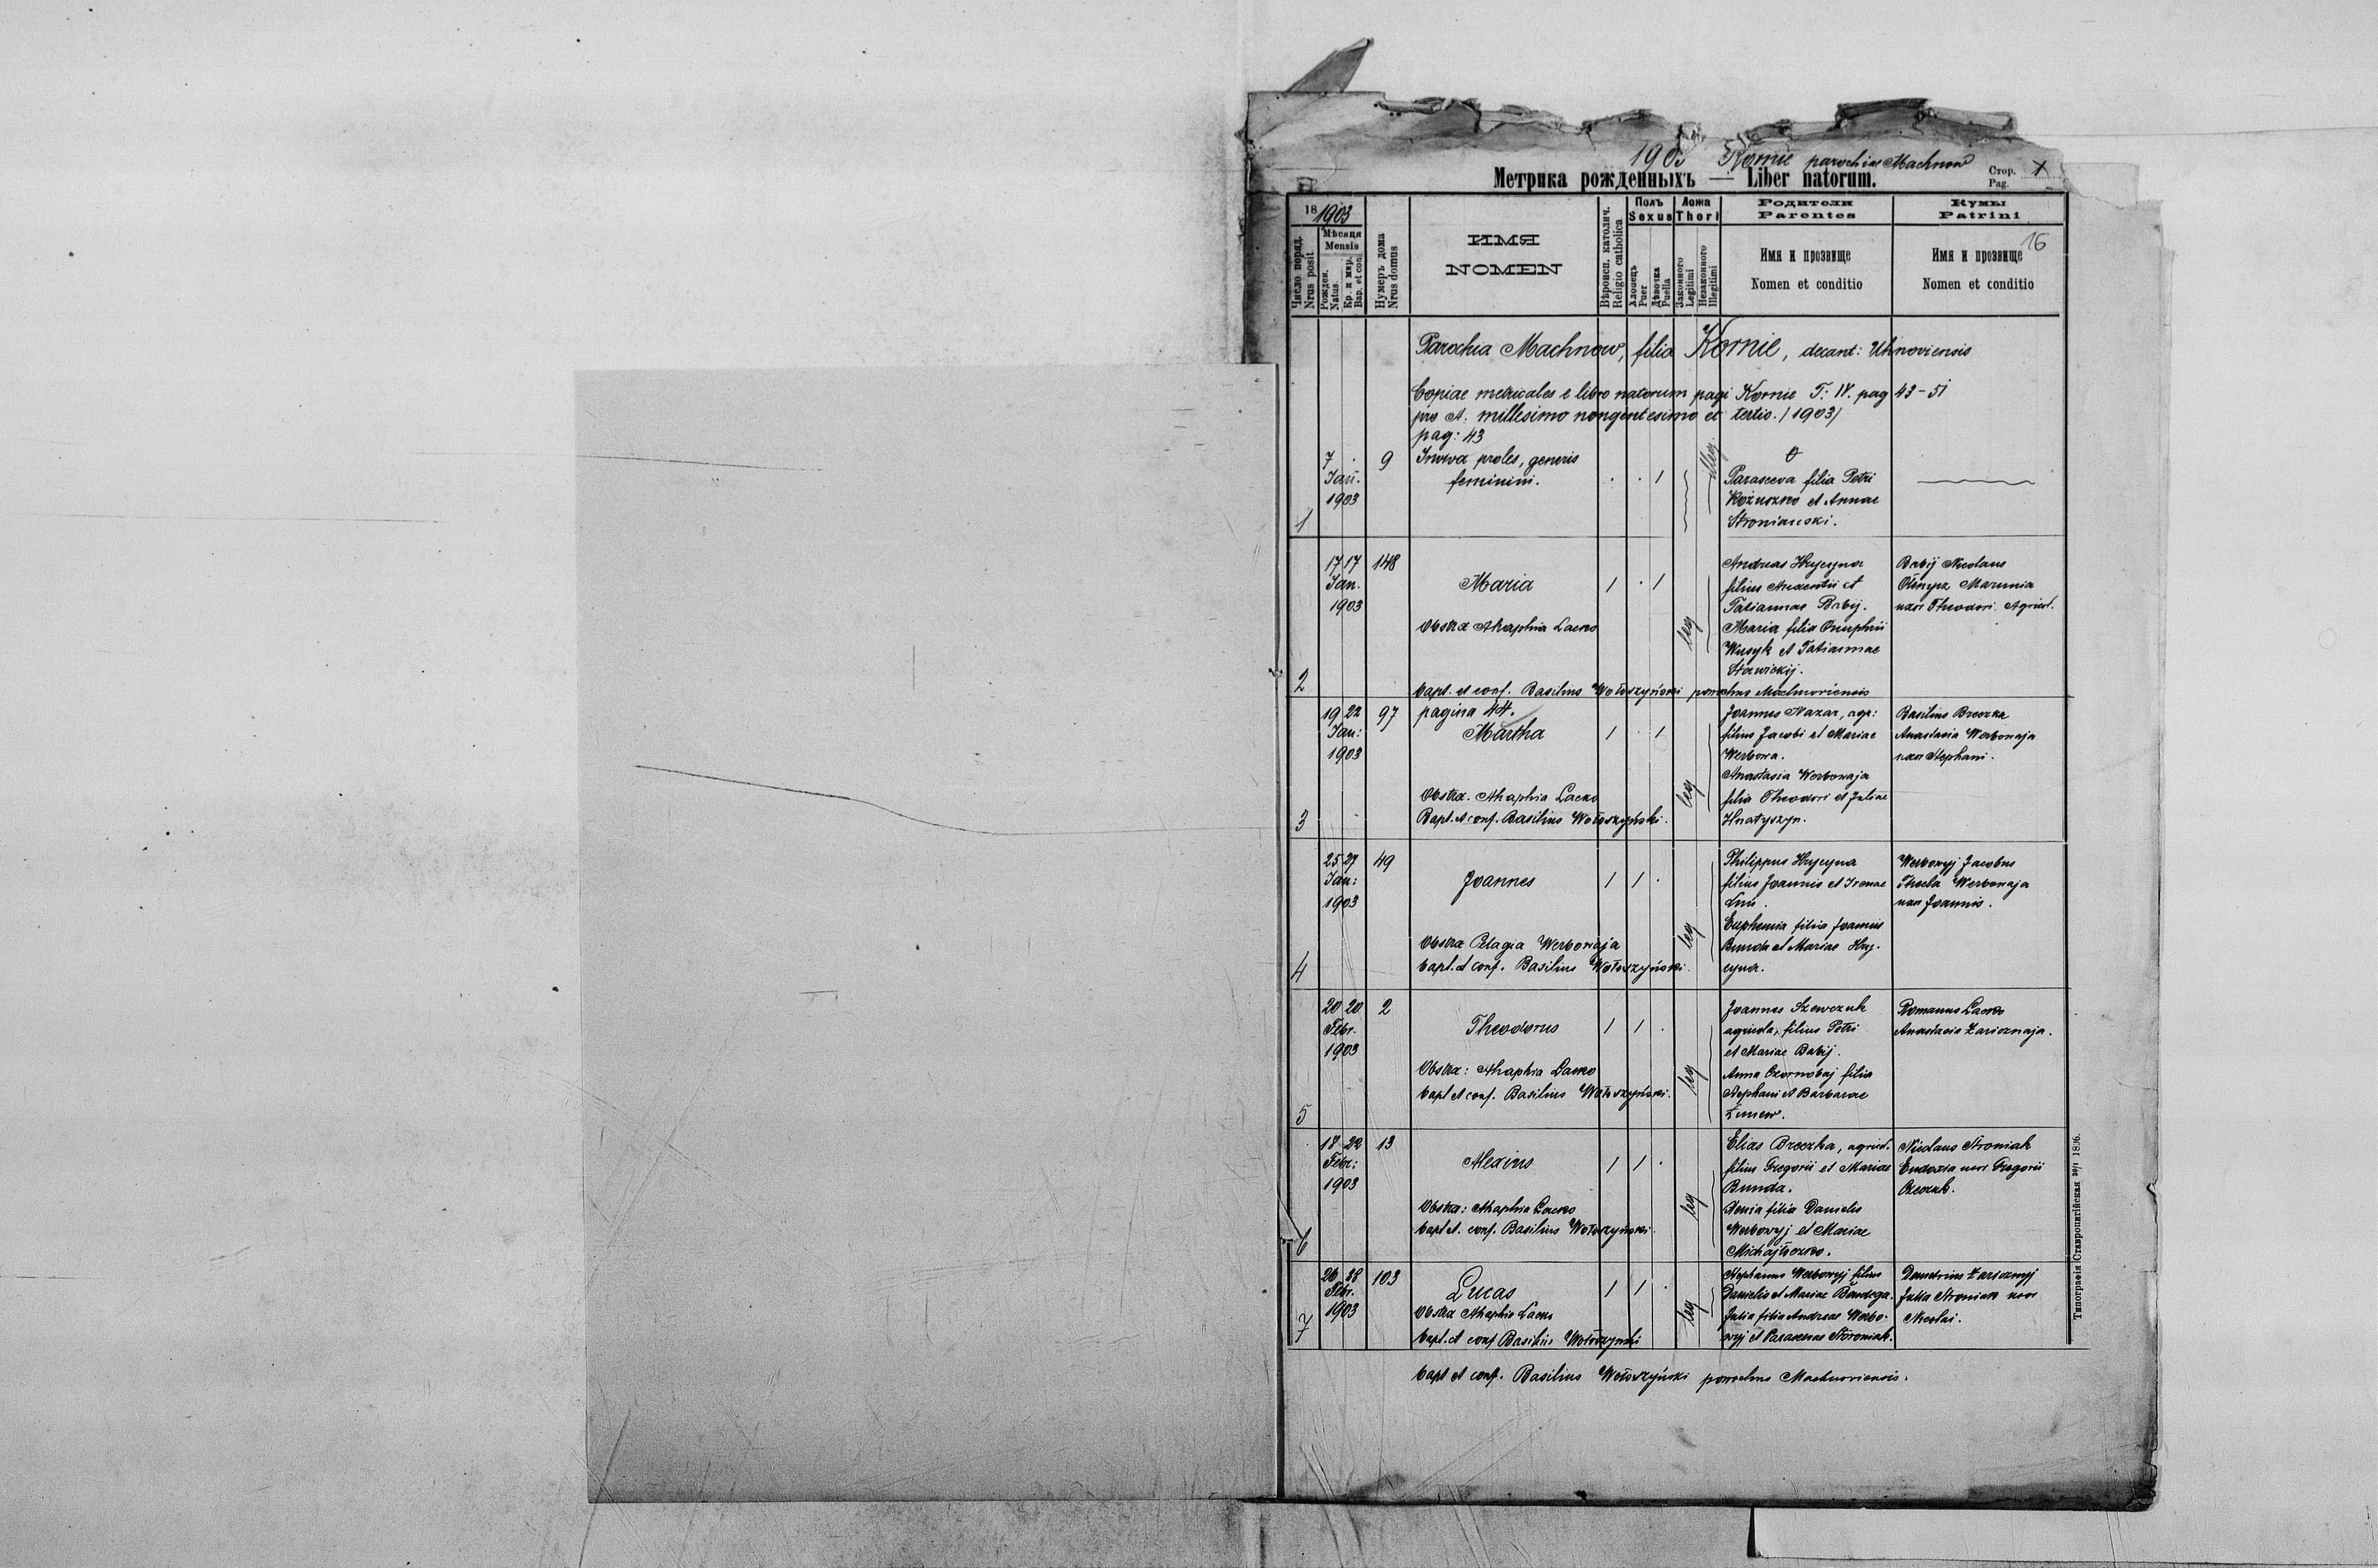 1903 Kornie parochiae Machnow
Метрика рожденныхъ — Liber natorum.
Стор. Pag. X
18 1903
Мѣсяця Mensis
Число поряд. Nrus posit
Рожден. Natus.
Кр. и мир. Bap. et con.
Нумеръ дома Nrus domus
ИМЯ
NOMEN
Вѣроисп. католич. Religio catholica
Полъ Sexus
Хлопецъ Puer
Дѣвочка Puella
Ложа Thori
Законного Legitimi
Незаконного Illegitimi
Родители Parentes
Имя и прозвище
Nomen et conditio
Кумы Patrini
16
Имя и прозвище
Nomen et conditio
Parochia Machnow, filia Kornie, decant: Uhnoviensis
Copiae metricales e libro natorum pagi Kornie T: IV. pag 43-51
pro A. millesimo nongentesimo et tertio. /1903/
pag: 43
1
7 Jan. 1903
9
proles, generis
feminini.
1
illeg.
Parasceva filia Petri
et Annae
2
17 17 Jan. 1903
148
Maria
1 1
leg
Obstrx Ahaphia Lacko
bapt. et conf. Basilius Wołoszyński parochus Machnoviensis
Andreas Hrycyna
filius et
Tatiannae Babij.
Maria filia Onuphrii
Wusyk et Tatiannae
Stawickij.
Babij Nicolaus
Marunia
uxor Theodori. Agricol.
3
19 22 Jan: 1903
97
pagina 44.
Martha
1 1
leg
Obstrx. Ahaphia Lacko
Bapt. et conf. Basilius Wołoszyński.
Joannes Nazar, agr:
filius Jacobi et Mariae
Werbowa.
Anastasia Werbowaja
filia Theodori et Juliae
Hnatyszyn.
Basilius Breczka
Anastasia Werbowaja
uxor Stephani.
4
25 27 Jan: 1903
49
Joannes
1 1
leg
Obstrx Pelagia Werbowaja
bapt. et conf. Basilius Wołoszyński.
Philippus Hrycyna
filius Joannis et Irenae
Euphemia filia Joannis
Bunda et Mariae Hry-
cyna.
Werbowyj Jacobus
Thecla Werbowaja
uxor Joannis.
5
20 20 Febr. 1903
2
Theodorus
1 1
leg
Obstrx: Ahaphia Lacko
bapt et conf. Basilius Wołoszyński.
Joannes Szewczuk
agricola, filius Petri
et Mariae Babij.
Anna Czornobaj filia
Stephani et Barbarae
Romanus Lacko
Anastasia Zaricznaja.
6
18 22 Febr: 1903
13
Alexius
1 1
leg
Obstrx: Ahaphia Lacko
bapt et. conf. Basilius Wołoszyński.
Elias Breczka, agricol.
filius Gregorii et Mariae
Bunda.
filia Danielis
Werbowyj et Mariae
Nicolaus Stroniak
Eudoxia uxor Gregorii
7
26 28 Febr. 1903
103
Lucas
1 1
leg
Obstrx Ahaphia Lacko
bapt. et conf Basilius Wołoszyński
Stephanus Werbowyj filius
Danielis et Mariae
Julia filia Andreae Werbo-
wyj et Parascevae Stroniak.
Demetrius Zaricznyj
Julia Stroniak uxor
Nicolai.
bapt et conf. Basilius Wołoszyński parochus Machnoviensis.
Типографія Ставропигійская